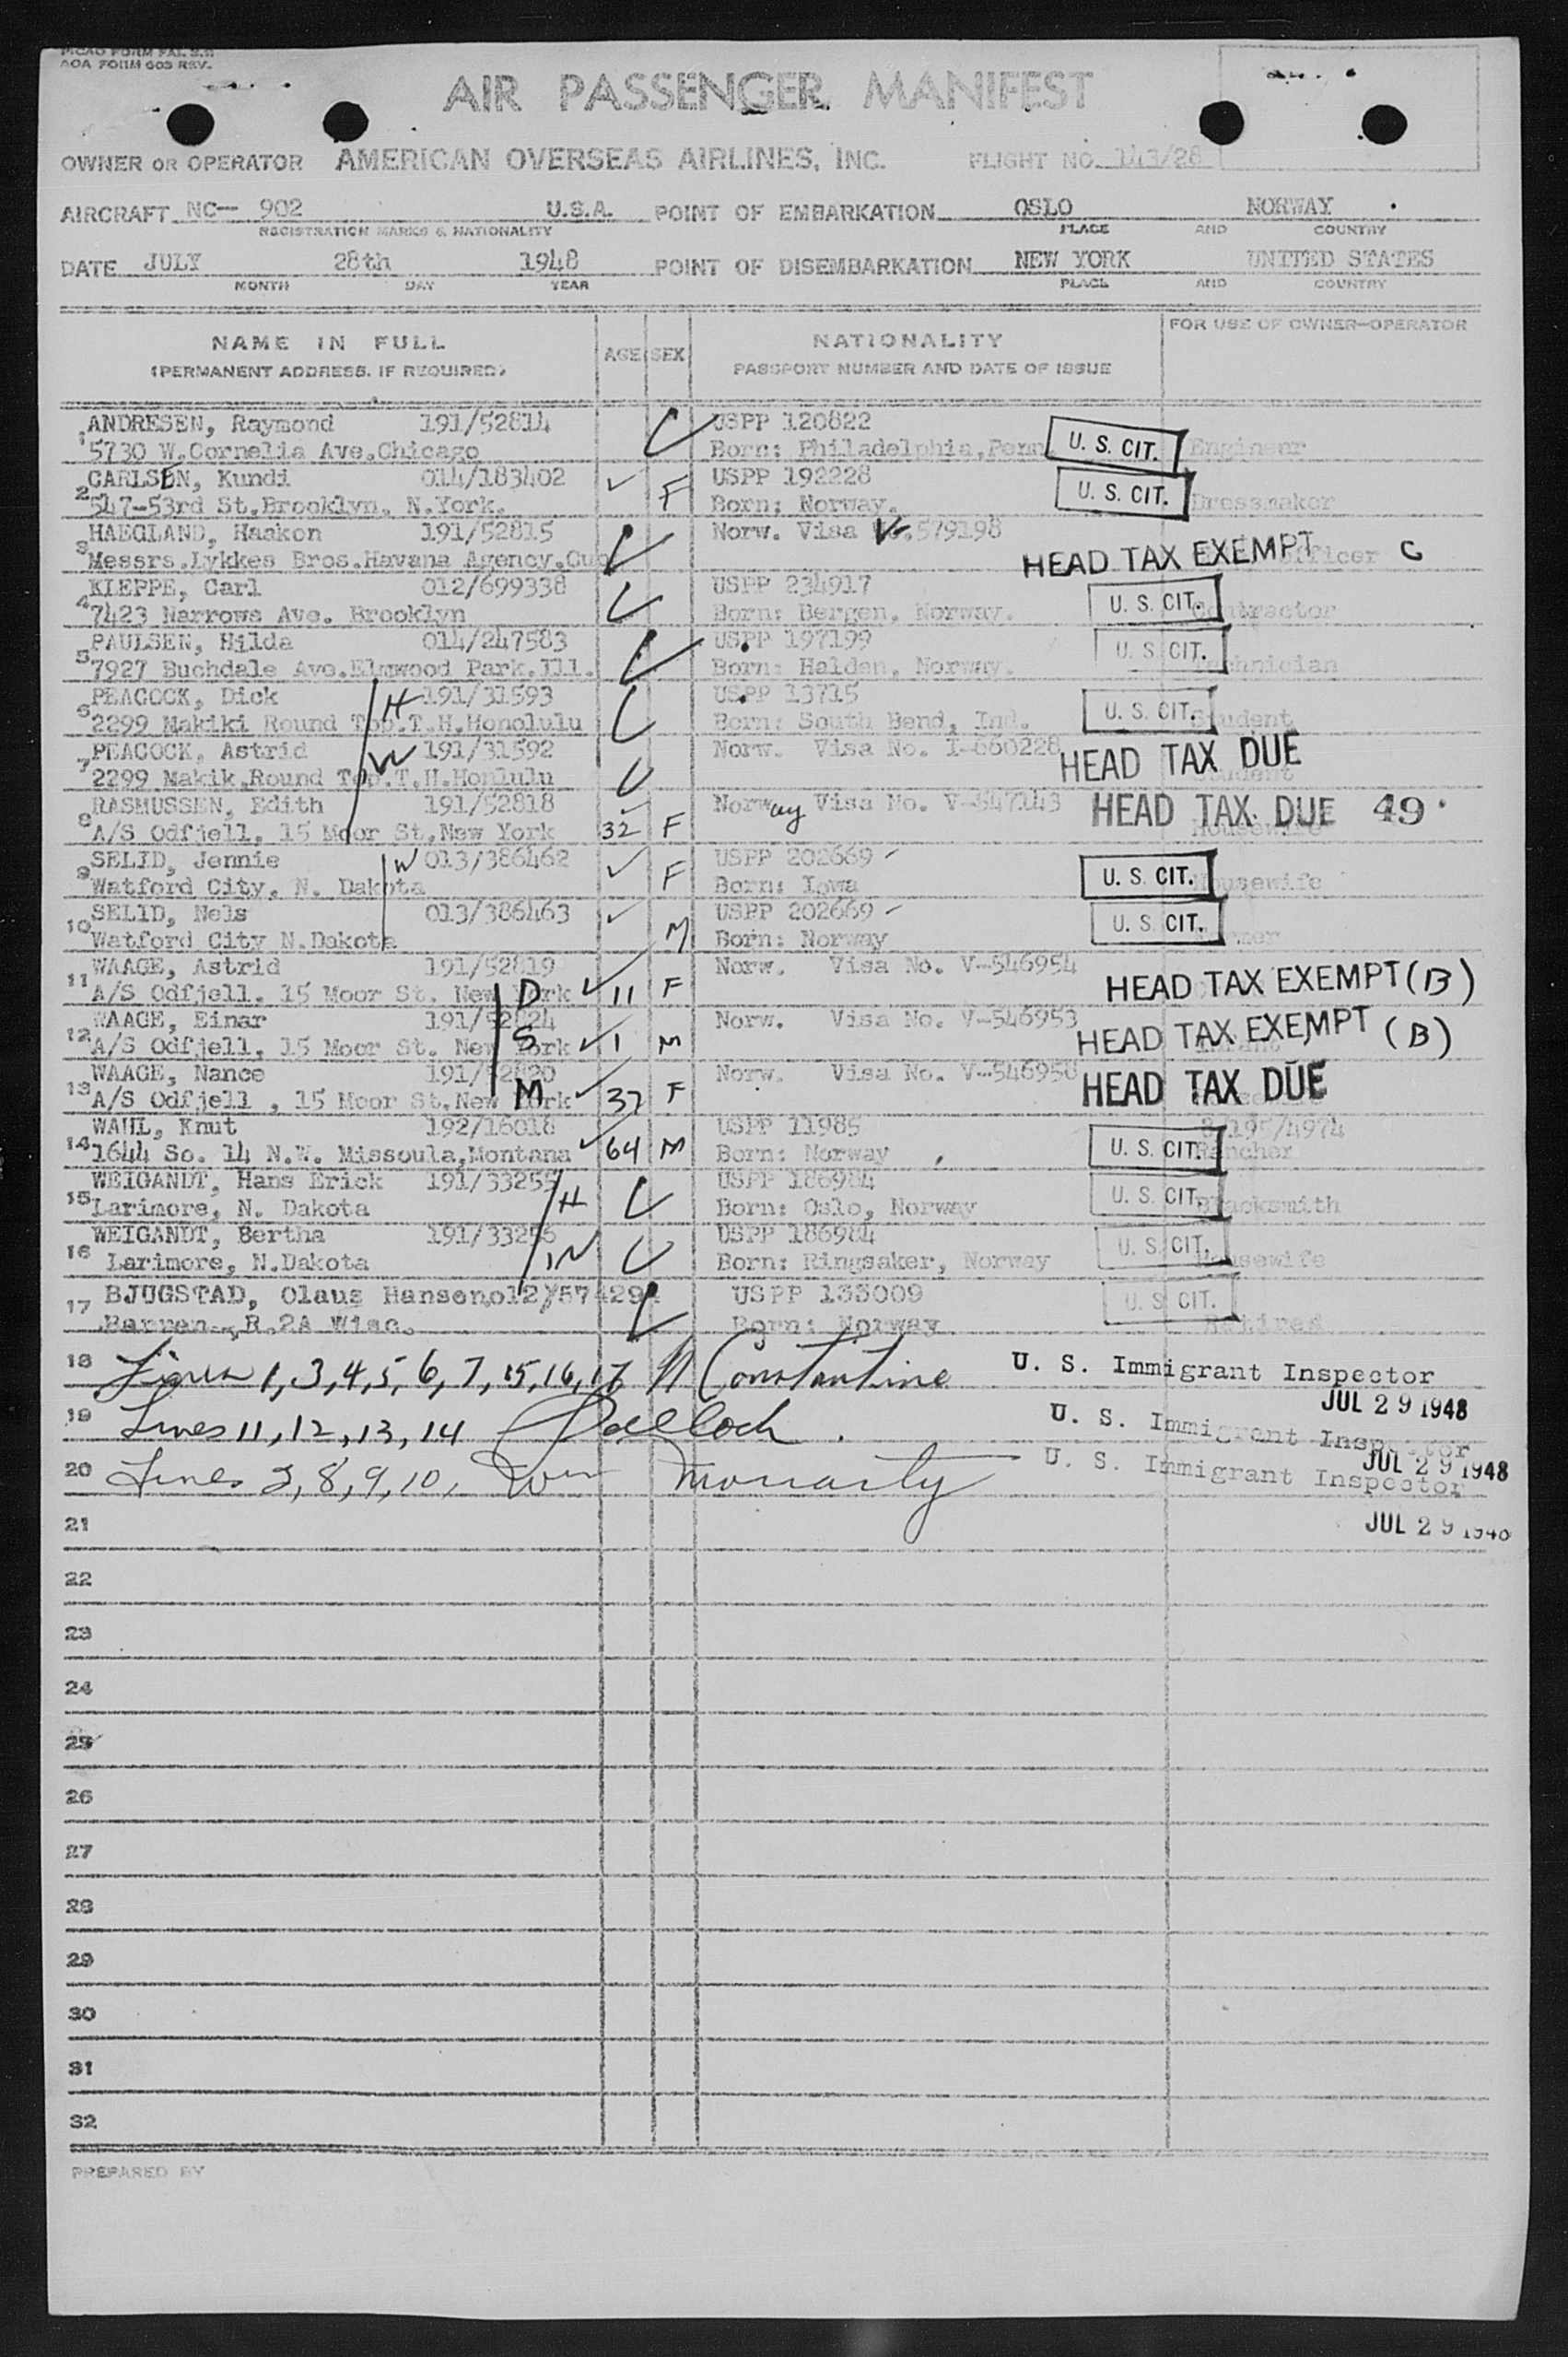 ICAO FORM FAL 2.2
AOA FORM 603 REV.
AIR PASSENGER MANIFEST
OWNER OR OPERATOR AMERICAN OVERSEAS AIRLINES, INC. FLIGHT NO. 143/28
AIRCRAFT NC— 902 U.S.A. POINT OF EMBARKATION OSLO NORWAY
REGISTRATION MARKS & NATIONALITY PLACE AND COUNTRY
DATE JULY 28th 1948 POINT OF DISEMBARKATION NEW YORK UNITED STATES
MONTH DAY YEAR PLACE AND COUNTRY
NAME IN FULL AGE SEX NATIONALITY FOR USE OF OWNER—OPERATOR
(PERMANENT ADDRESS, IF REQUIRED) PASSPORT NUMBER AND DATE OF ISSUE
1 ANDRESEN, Raymond 191/52814 USPP 120822
5730 W.Cornelia Ave.Chicago Born: Philadelphia,Penn U. S. CIT. Engineer
2 CARLSEN, Kundi 014/183402 F USPP 192228 U. S. CIT.
547-53rd St.Brooklyn. N.York. Born: Norway. Dressmaker
3 HAEGLAND, Haakon 191/52815 Norw. Visa 579198
Messrs.Lykkes Bros.Havana Agency.Cub HEAD TAX EXEMPT Officer C
4 KLEPPE, Carl 012/699338 USPP 234917 U. S. CIT.
7423 Narrows Ave. Brooklyn Born: Bergen, Norway. Contractor
5 PAULSEN, Hilda 014/247583 USPP 197199 U. S. CIT.
7927 Buchdale Ave.Elmwood Park.Ill. Born: Halden, Norway. Technician
6 PEACOCK, Dick H 191/31593 USPP 13715 U. S. CIT.
2299 Makiki Round Top.T.H.Honolulu Born: South Bend, Ind. Student
7 PEACOCK, Astrid W 191/31592 Norw. Visa No. I-660228 HEAD TAX DUE
2299 Makik.Round Top.T.H.Honlulu Student
8 RASMUSSEN, Edith 191/52818 Norway Visa No. V-547143 HEAD TAX DUE 49
A/S Odfjell, 15 Moor St,New York 32 F Housewife
9 SELID, Jennie W 013/386462 F USPP 202669 U. S. CIT.
Watford City, N. Dakota Born: Iowa Housewife
10 SELID, Nels 013/386463 M USPP 202669 U. S. CIT.
Watford City N.Dakota Born: Norway
11 WAAGE, Astrid 191/52819 Norw. Visa No. V-546954
A/S Odfjell. 15 Moor St. New York D 11 F HEAD TAX EXEMPT (B)
12 WAAGE, Einar 191/52824 Norw. Visa No. V-546953
A/S Odfjell, 15 Moor St. New York S 1 M HEAD TAX EXEMPT (B)
13 WAAGE, Nance 191/52820 Norw. Visa No. V-546958 HEAD TAX DUE
A/S Odfjell , 15 Moor St.New York M 37 F
14 WAHL, Knut 192/16018 USPP 11985 195/4974
1644 So. 14 N.W. Missoula,Montana 64 M Born: Norway U. S. CIT. Rancher
15 WEIGANDT, Hans Erick 191/33255 H USPP 186984 U. S. CIT.
Larimore, N. Dakota Born: Oslo, Norway Blacksmith
16 WEIGANDT, Bertha 191/33256 W USPP 186984 U. S. CIT.
Larimore, N.Dakota Born: Ringsaker, Norway Housewife
17 BJUGSTAD, Olaus Hansen 012/574294 USPP 133009 U. S. CIT.
Barren , R.2A Wisc. Born: Norway Retired
18 Lines 1, 3, 4, 5, 6, 7, 15, 16, 17 Constantine U. S. Immigrant Inspector
JUL 29 1948
19 Lines 11, 12, 13, 14 U. S. Immigrant Inspector
JUL 29 1948
20 Lines 2, 8, 9, 10, Moriarty U. S. Immigrant Inspector
JUL 29 1948
21
22
23
24
25
26
27
28
29
30
31
32
PREPARED BY